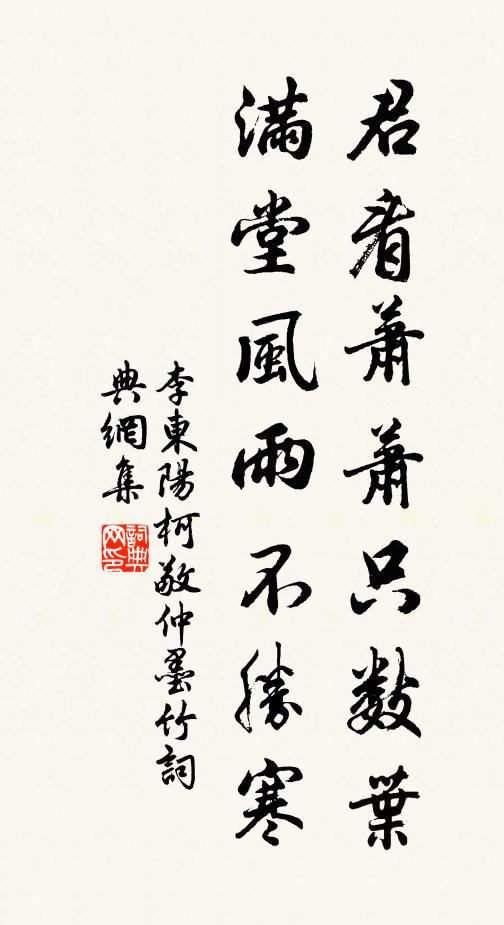 君看蕭蕭只數葉
滿堂風雨不勝寒
李東陽柯敬仲墨竹詞
典網集
詞典网印